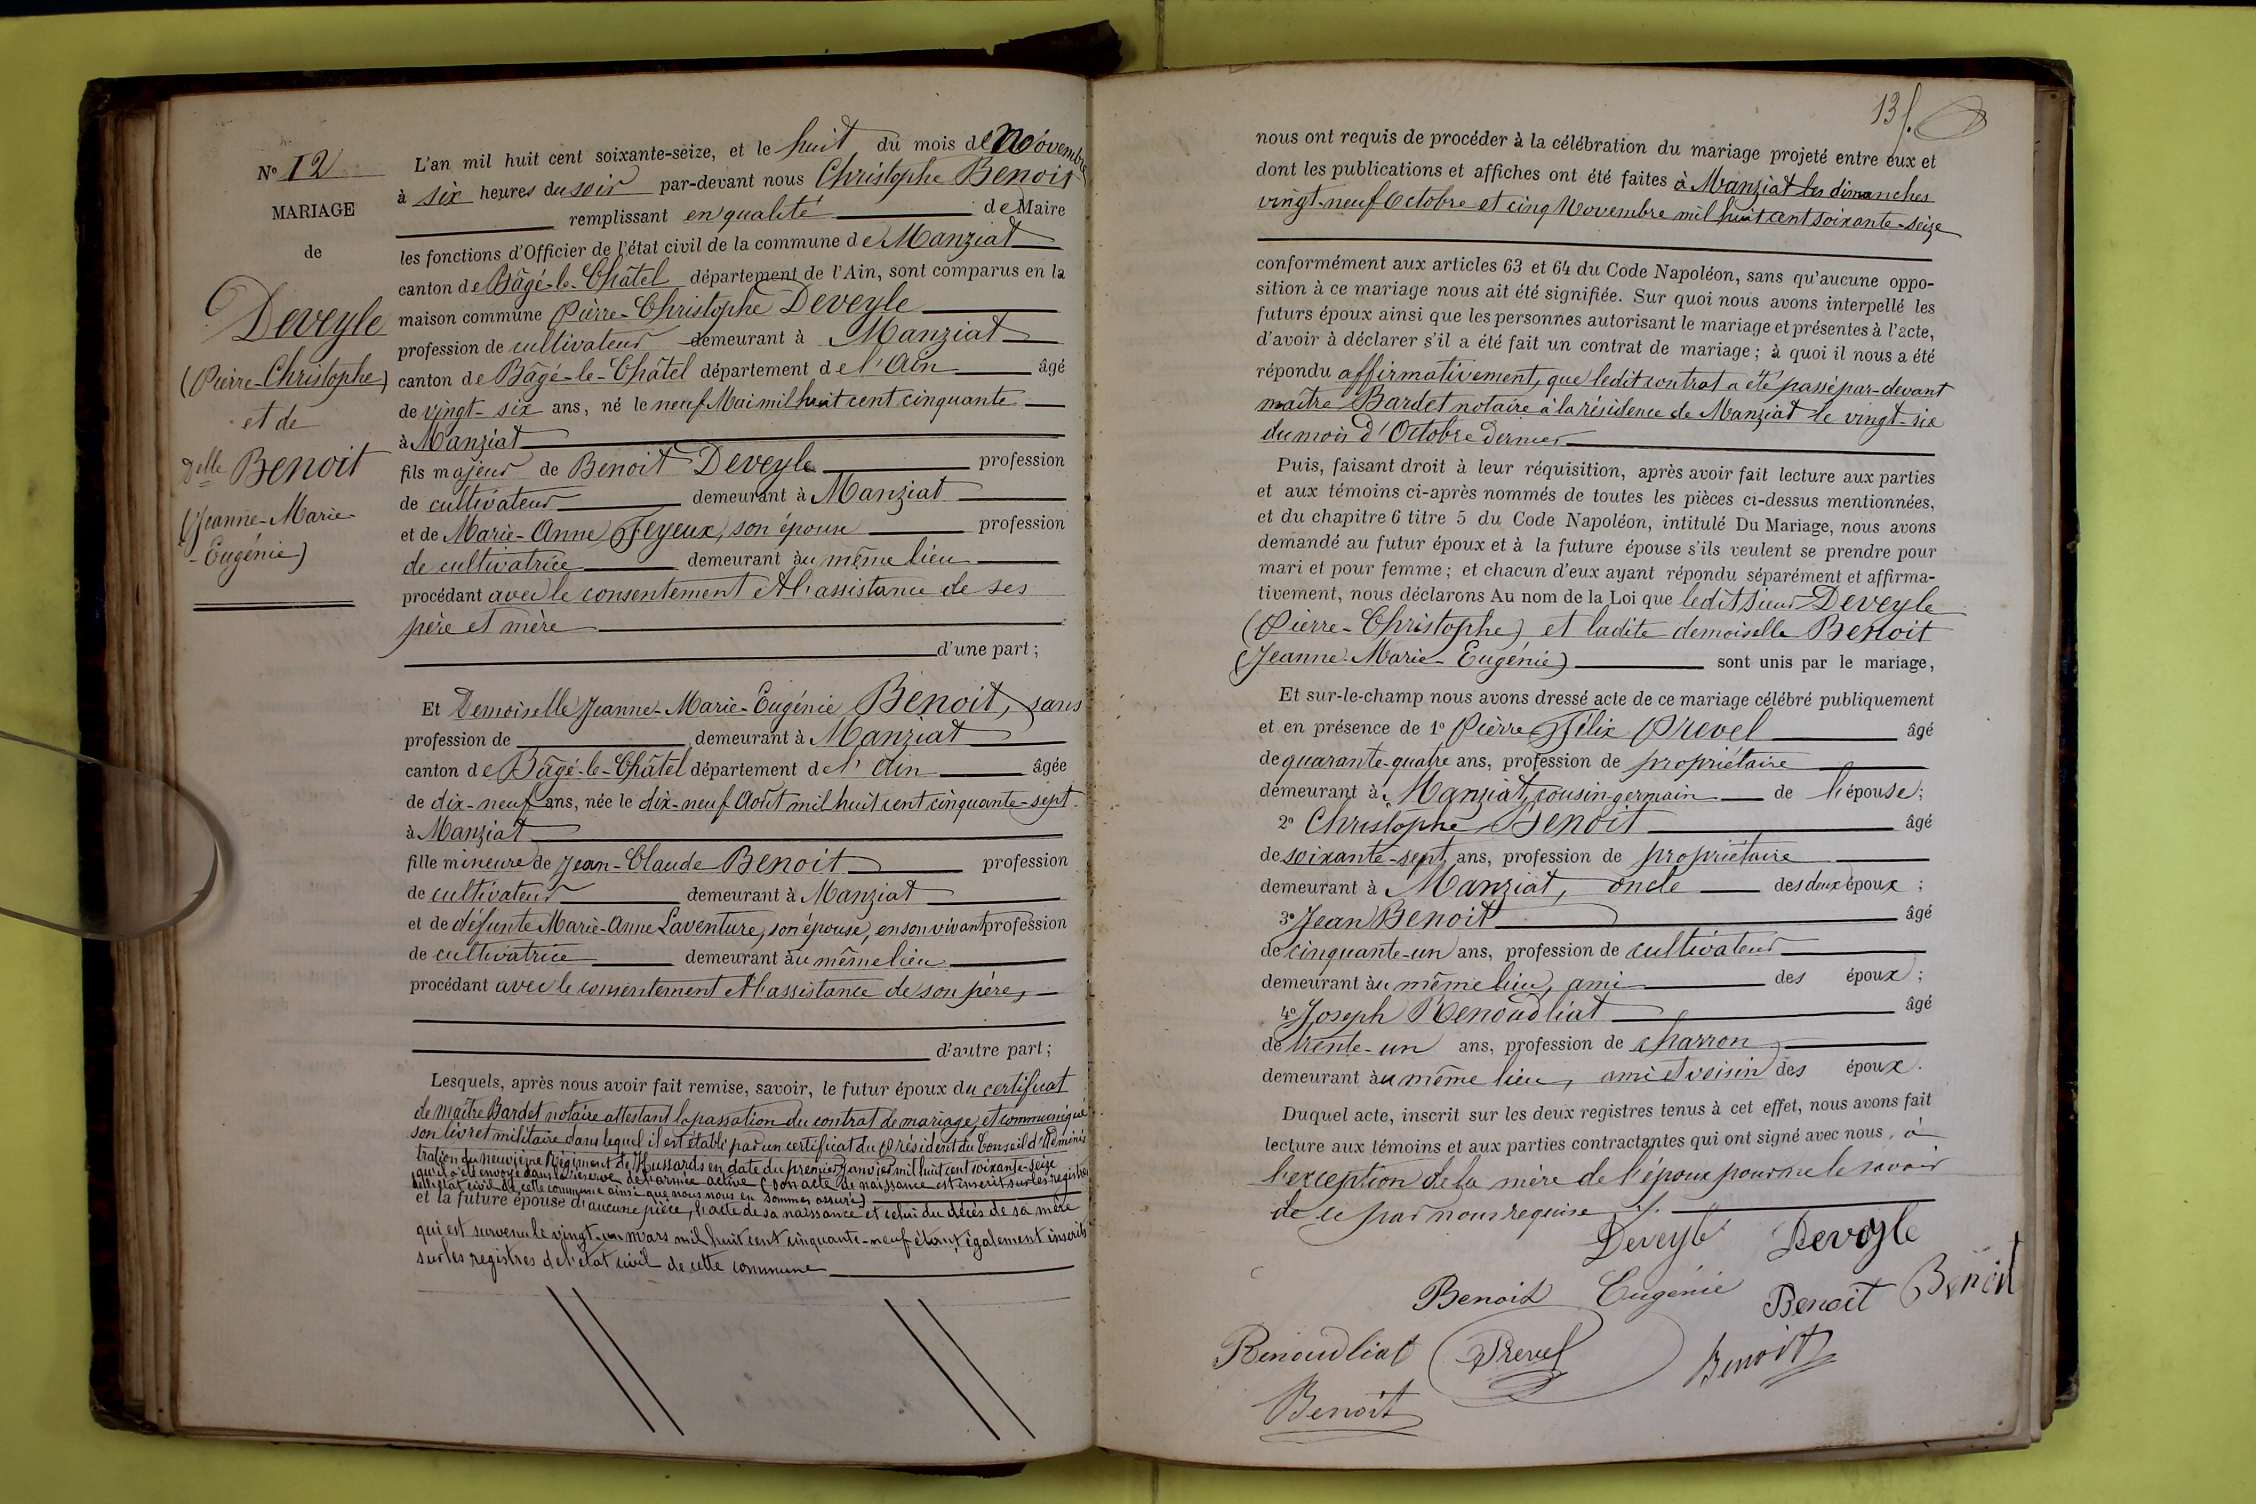 No 12
MARIAGE
de
Deveyle
(Pierre-Christophe)
et de
Delle Benoit
(Jeanne-Marie
-Eugénie)
L'an mil huit cent soixante-seize, et le huit du mois de Novembre
à six heures du soir par-devant nous Christophe Benoit
remplissant en qualité de Maire
les fonctions d'Officier de l'état civil de la commune de Manziat
canton de Bâgé-le-Châtel département de l'Ain, sont comparus en la
maison commune Pierre-Christophe Deveyle
profession de cultivateur demeurant à Manziat
canton de Bâgé-le-Châtel département de l'Ain âgé
de vingt-six ans, né le neuf Mai mil huit cent cinquante
à Manziat
fils majeur de Benoit Deveyle profession
de cultivateur demeurant à Manziat
et de Marie-Anne Feyeux, son épouse profession
de cultivatrice demeurant au même lieu
procédant avec le consentement et l'assistance de ses
père et mère
d'une part;
Et Demoiselle Jeanne-Marie-Eugénie Benoit, sans
profession de demeurant à Manziat
canton de Bâgé-le-Châtel département de l'Ain âgée
de dix-neuf ans, née le dix-neuf Août mil huit cent cinquante-sept
à Manziat
fille mineure de Jean-Claude Benoit profession
de cultivateur demeurant à Manziat
et de défunte Marie-Anne Laventure, son épouse, en son vivant profession
de cultivatrice demeurant au même lieu
procédant avec le consentement et l'assistance de son père,
d'autre part;
Lesquels, après nous avoir fait remise, savoir, le futur époux du certificat
de maître Bardet notaire attestant la passation du contrat de mariage, et communiqué
son livret militaire dans lequel il est établi par un certificat du Président du Conseil d'Adminis
tration du neuvième Régiment de Hussards en date du premier Janvier mil huit cent soixante-seize
qu'il a été envoyé dans la réserve de l'armée active (son acte de naissance est inscrit sur les registres
de l'état civil de cette commune ainsi que nous nous en sommes assuré)
et la future épouse d'aucune pièce, l'acte de sa naissance et celui du décès de sa mère
qui est survenu le vingt-un mars mil huit cent cinquante-neuf étant également inscrits
sur les registres de l'état civil de cette commune
13
nous ont requis de procéder à la célébration du mariage projeté entre eux et
dont les publications et affiches ont été faites à Manziat les dimanches
vingt-neuf Octobre et cinq Novembre mil huit cent soixante-seize
conformément aux articles 63 et 64 du Code Napoléon, sans qu'aucune oppo-
sition à ce mariage nous ait été signifiée. Sur quoi nous avons interpellé les
futurs époux ainsi que les personnes autorisant le mariage et présentes à l'acte,
d'avoir à déclarer s'il a été fait un contrat de mariage; à quoi il nous a été
répondu affirmativement, que ledit contrat a été passé par-devant
maître Bardet notaire à la résidence de Manziat le vingt-six
du mois d'Octobre dernier
Puis, faisant droit à leur réquisition, après avoir fait lecture aux parties
et aux témoins ci-après nommés de toutes les pièces ci-dessus mentionnées,
et du chapitre 6 titre 5 du Code Napoléon, intitulé Du Mariage, nous avons
demandé au futur époux et à la future épouse s'ils veulent se prendre pour
mari et pour femme; et chacun d'eux ayant répondu séparément et affirma-
tivement, nous déclarons Au nom de la Loi que ledit sieur Deveyle
(Pierre-Christophe) et ladite demoiselle Benoit
(Jeanne-Marie-Eugénie) sont unis par le mariage,
Et sur-le-champ nous avons dressé acte de ce mariage célébré publiquement
et en présence de 1o Pierre Félix Prevel âgé
de quarante-quatre ans, profession de propriétaire
demeurant à Manziat, cousin germain de l'épouse;
2o Christophe Benoit âgé
de soixante-sept ans, profession de propriétaire
demeurant à Manziat, oncle des deux époux;
3o Jean Benoit âgé
de cinquante-un ans, profession de cultivateur
demeurant au même lieu, ami des époux;
4o Joseph Renoudliat âgé
de trente-un ans, profession de charron,
demeurant au même lieu, ami et voisin des époux.
Duquel acte, inscrit sur les deux registres tenus à cet effet, nous avons fait
lecture aux témoins et aux parties contractantes qui ont signé avec nous, à
l'exception de la mère de l'époux pour ne le savoir
de ce par nous requise
Deveyle Deveyle
Benoit Eugénie Benoit Benoit
Renoudliat Prevel Benoit
Benoit